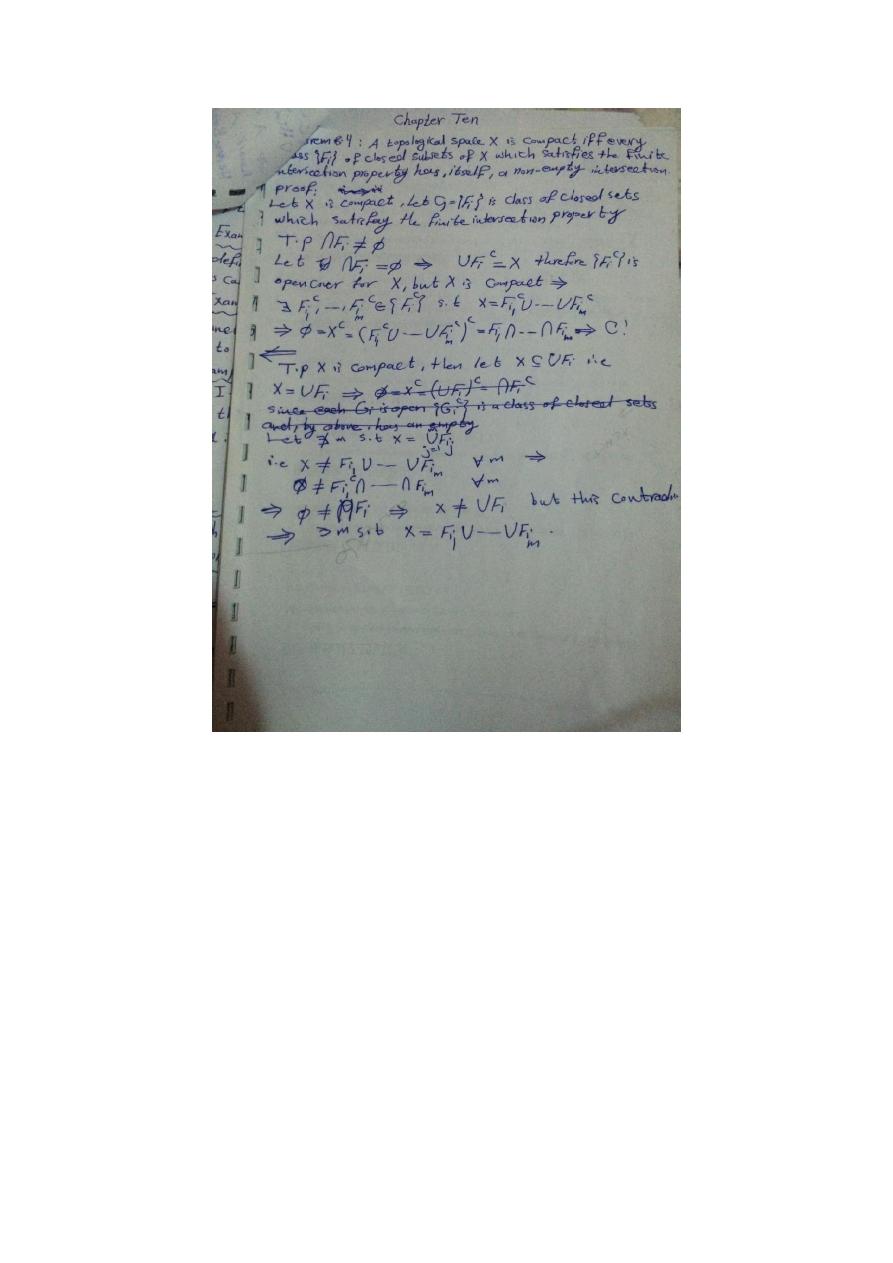 Chapter Ten
rem 6.4 : A topological space X is compact iff every
ass {Fi} of closed subsets of X which satisfies the finite
ntersection property has, itself, a non-empty intersection.
proof:
Let X is compact, Let G={Fi} is class of closed sets
which satisfay the finite intersection property
T.p ∩Fi ≠ ϕ
Let ∩Fi = ϕ ⇒ ∪Fiᶜ = X therefore {Fiᶜ} is
open cover for X, but X is compact ⇒
∃ Fi₁ᶜ, ..., Fiₘᶜ ∈ {Fiᶜ} s.t X = Fi₁ᶜ ∪ --- ∪ Fiₘᶜ
⇒ ϕ = Xᶜ = (Fi₁ᶜ ∪ --- ∪ Fiₘᶜ)ᶜ = Fi₁ ∩ --- ∩ Fiₘ ⇒ C!
⇐
T.p X is compact, then let X ⊆ ∪Fi i.e
X = ∪Fi ⇒ ϕ = Xᶜ = (∪Fi)ᶜ = ∩Fiᶜ
since each Gi is open {Giᶜ} is a class of closed sets
and, by above, has an empty
Let ∄ m s.t X = ∪Fiⱼ
j=1
i.e X ≠ Fi₁ ∪ --- ∪ Fiₘ ∀m ⇒
ϕ ≠ Fi₁ᶜ ∩ --- ∩ Fiₘ ∀m
⇒ ϕ ≠ ∩Fi ⇒ X ≠ ∪Fi but this contradi
⇒ ∃ m s.t X = Fi₁ ∪ --- ∪ Fiₘ .
Exam
defi
s ca
Exam
to
am
I
th